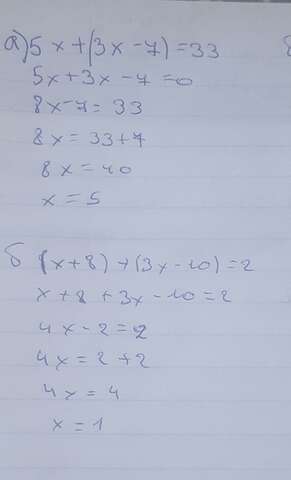 а) 5x+(3x-7)=33
5x+3x-7=0
8x-7=33
8x=33+7
8x=40
x=5
б (x+8)+(3x-10)=2
x+8+3x-10=2
4x-2=2
4x=2+2
4x=4
x=1